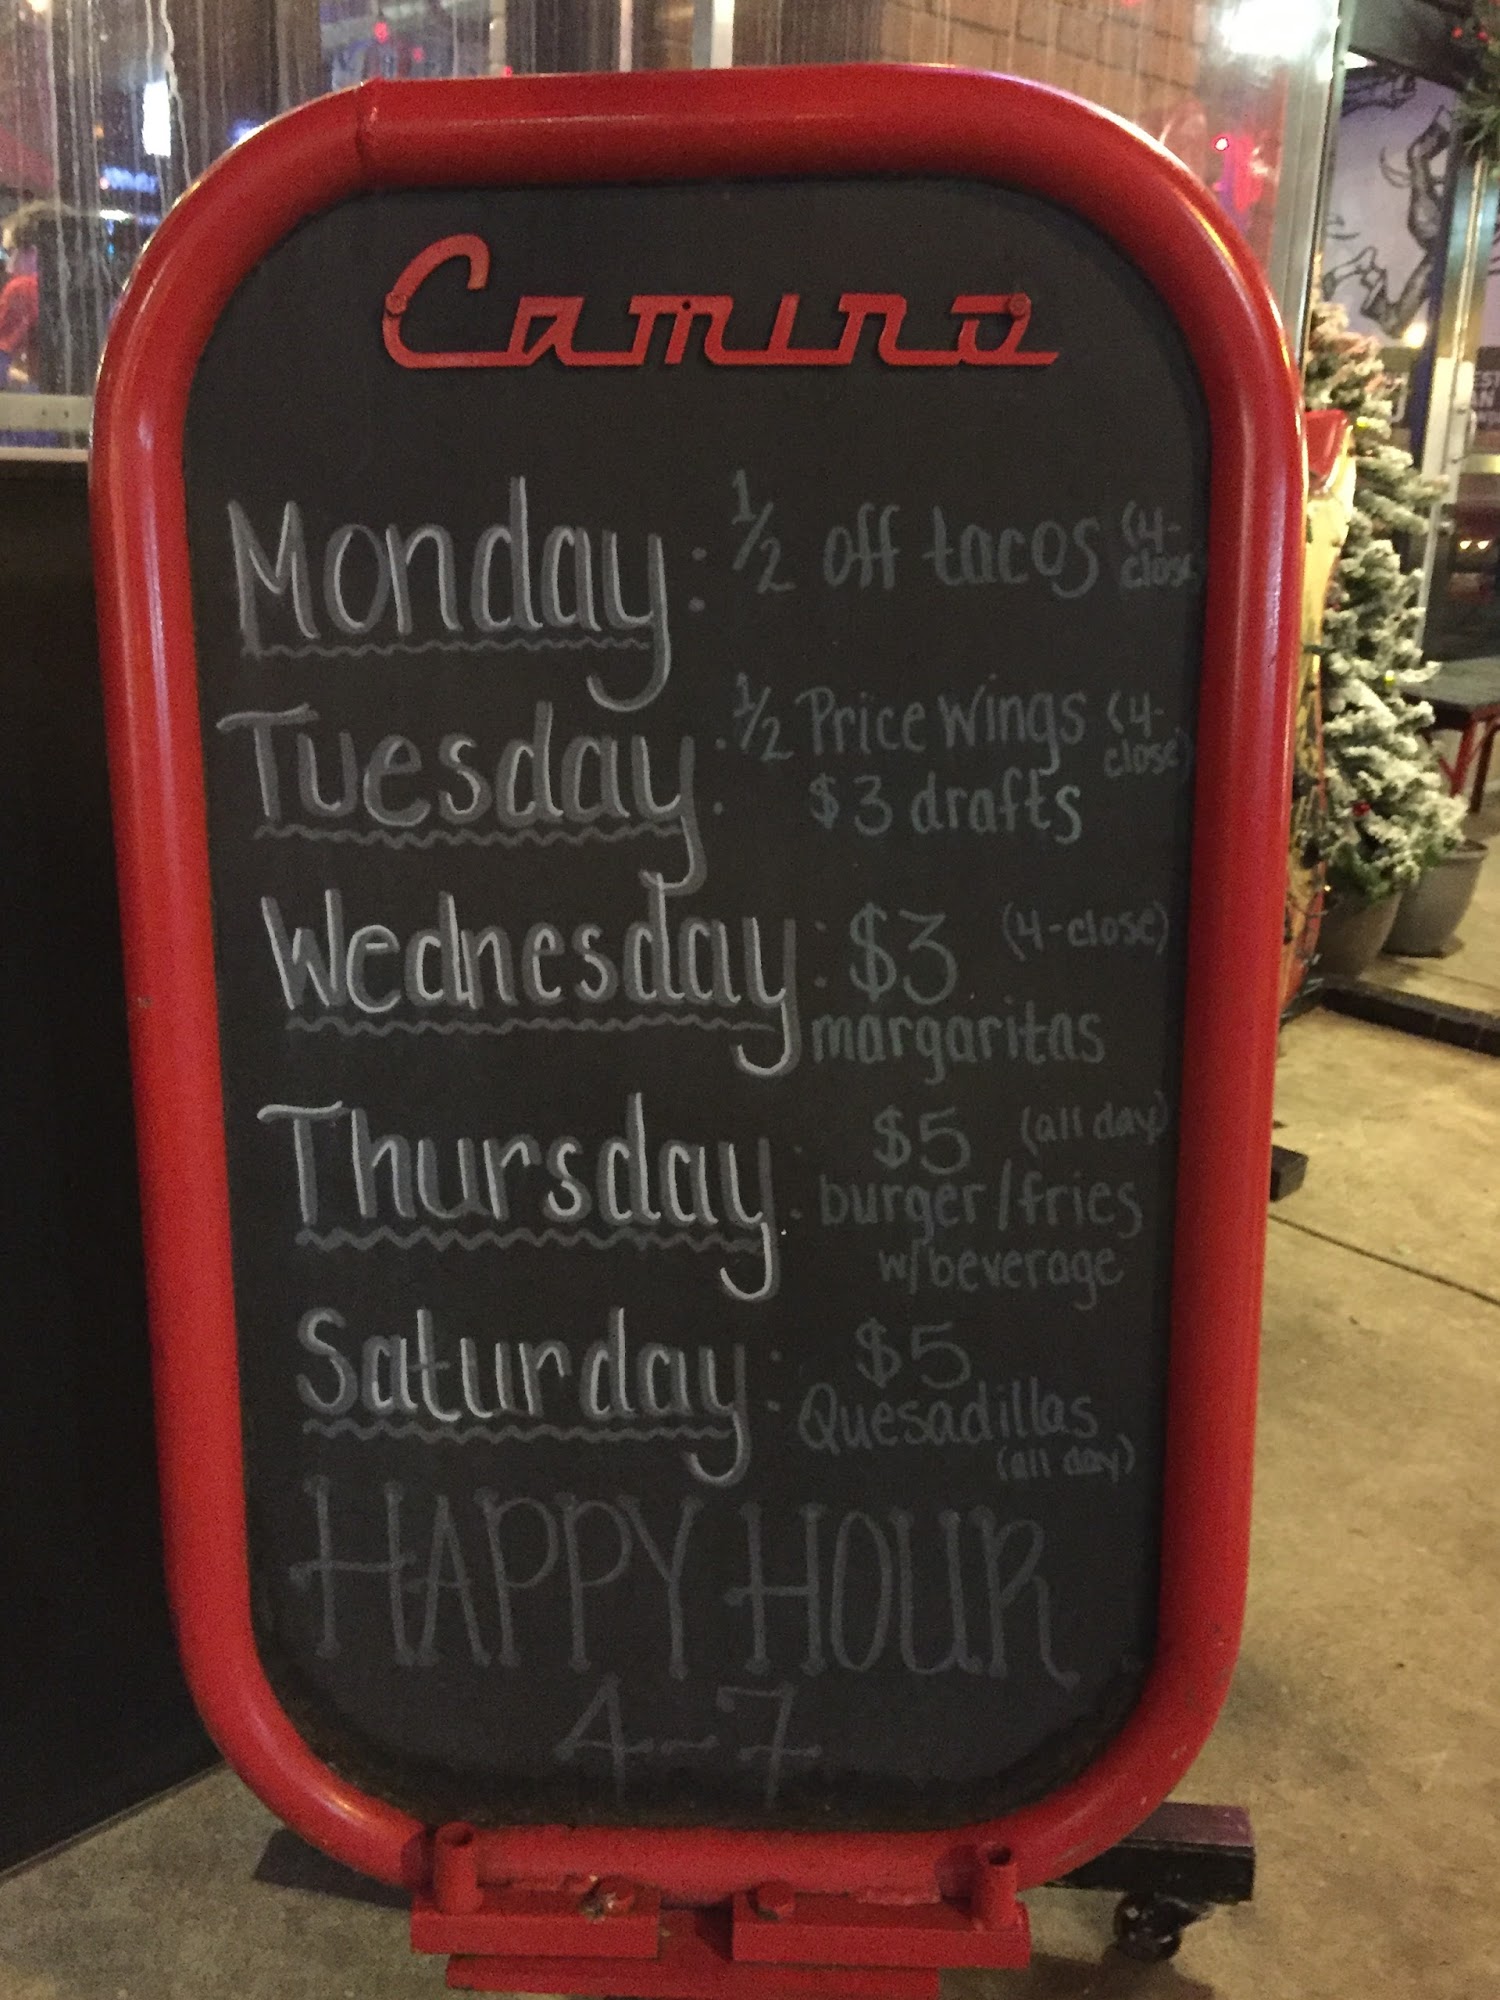 Camino
Monday: 1/2 off tacos (4-close)
Tuesday: 1/2 Price Wings (4-close)
$3 drafts
Wednesday: $3 (4-close)
margaritas
Thursday: $5 (all day)
burger/fries
w/beverage
Saturday: $5
Quesadillas
(all day)
HAPPY HOUR
4-7